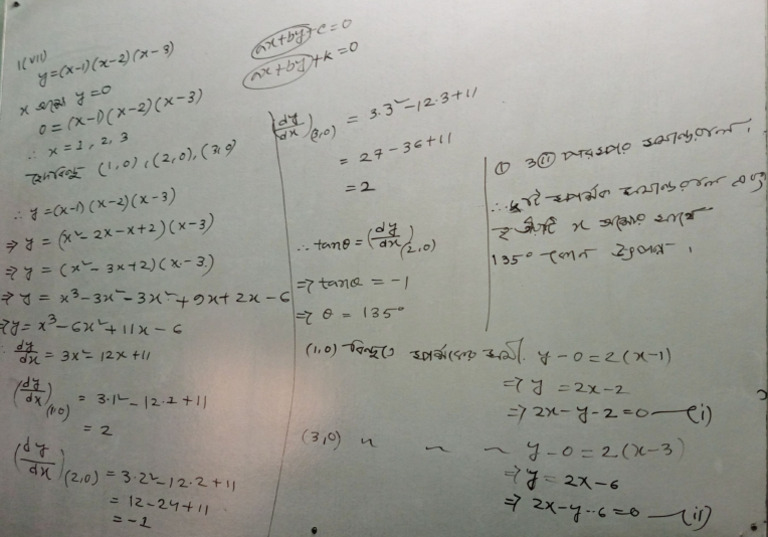 1(VII)
y=(x-1)(x-2)(x-3)
x অক্ষে y=0
0=(x-1)(x-2)(x-3)
∴ x=1, 2, 3
(1,0), (2,0), (3,0)
∴ y=(x-1)(x-2)(x-3)
⇒ y = (x²-2x-x+2)(x-3)
⇒ y = (x²-3x+2)(x-3)
⇒ y = x³-3x²-3x²+9x+2x-6
⇒ y = x³-6x²+11x-6
dy/dx = 3x²-12x+11
(dy/dx)(1,0) = 3.1²-12.1+11
= 2
(dy/dx)(2,0) = 3.2²-12.2+11
= 12-24+11
= -1
ax+by+c=0
ax+by+k=0
(dy/dx)(3,0) = 3.3²-12.3+11
= 27-36+11
= 2
∴ tanθ = (dy/dx)(2,0)
⇒ tanθ = -1
⇒ θ = 135°
① ও ⑪ পরস্পর সমান্তরাল।
∴ দুটি স্পর্শক সমান্তরাল এবং
x অক্ষের সাথে
135° কোণ উৎপন্ন।
(1,0) বিন্দুতে স্পর্শকের সমী. y-0=2(x-1)
⇒ y = 2x-2
⇒ 2x-y-2=0 —(i)
(3,0) " ~ ~ y-0=2(x-3)
⇒ y = 2x-6
⇒ 2x-y-6=0 —(ii)